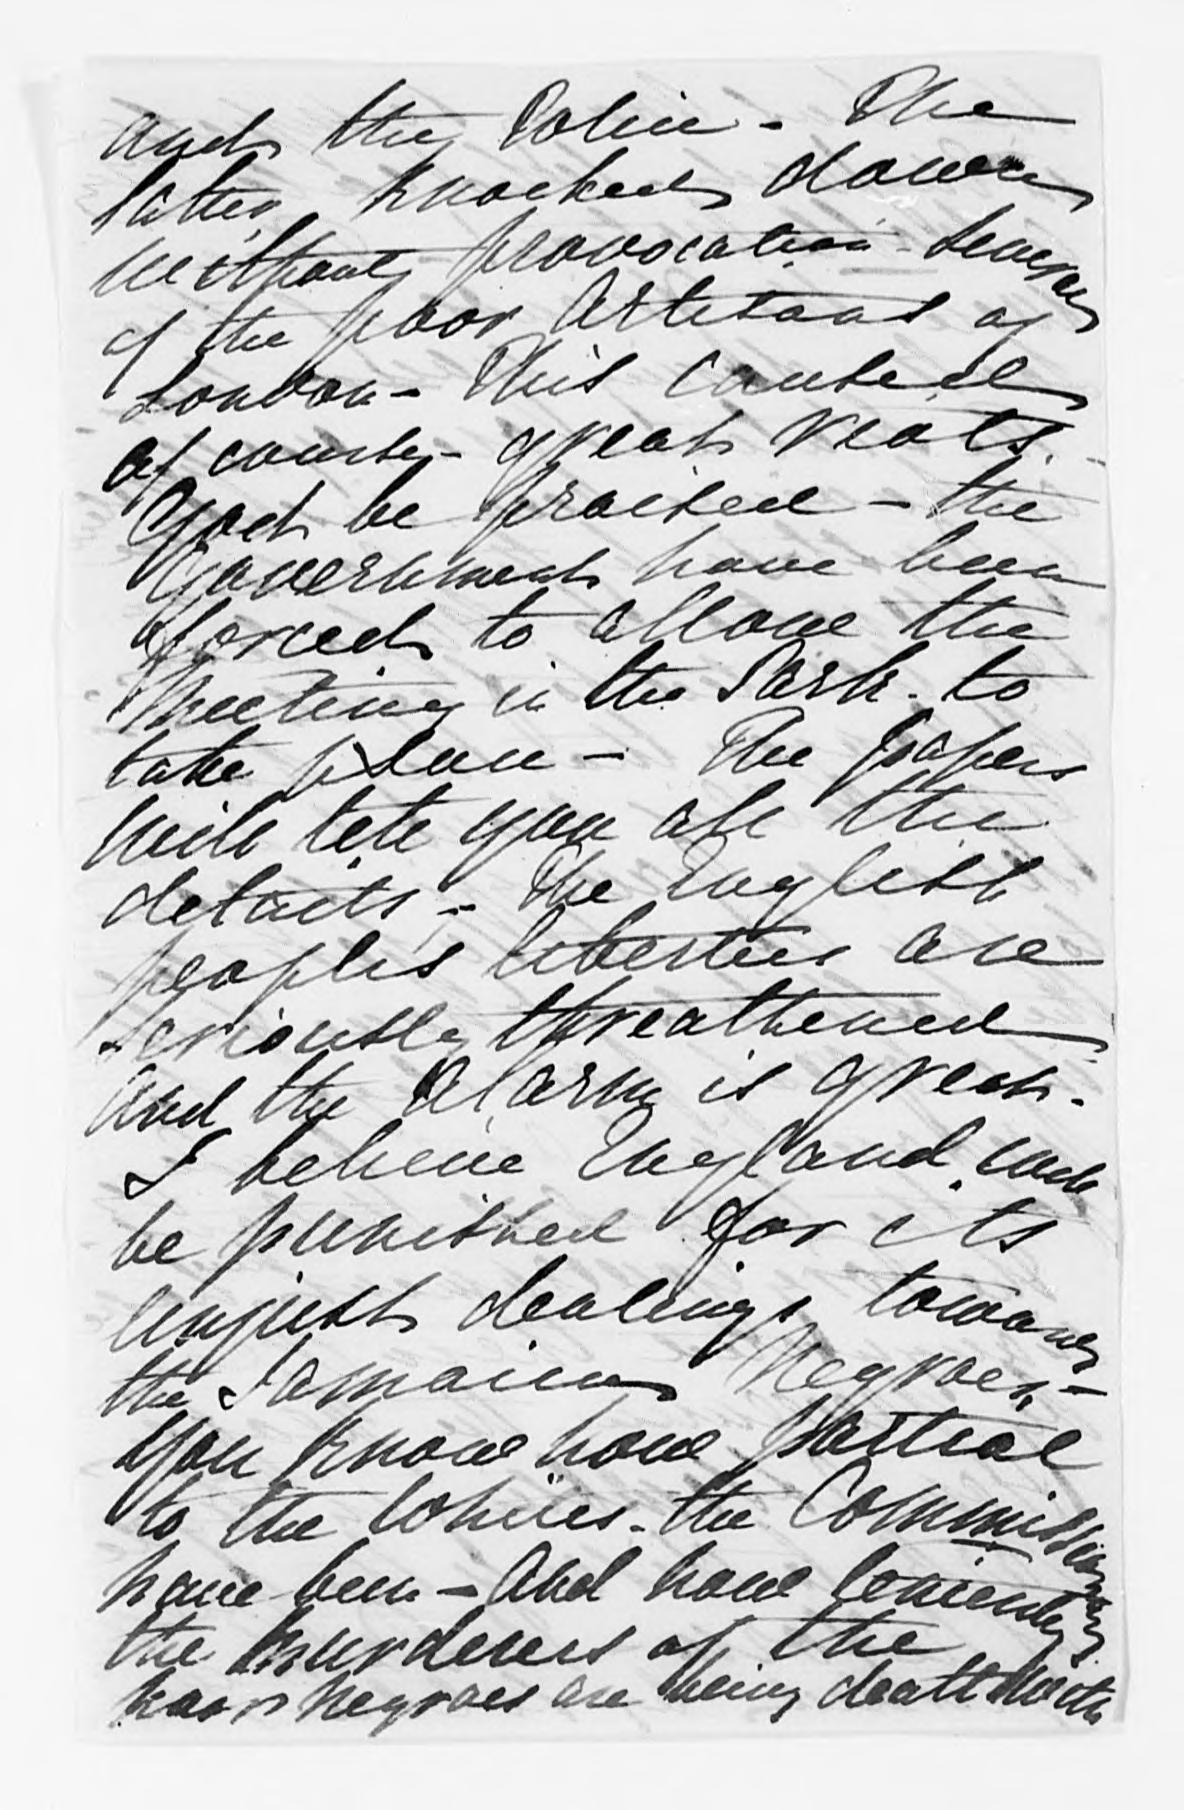 and the Police - The
latter knocked down
without provocation - several
of the poor Artisans of
London - This caused
of course - great riots.
God be praised - the
Government have been
forced to allow the
Meeting in the Park - to
take place - The papers
will tell you all the
details - The English
people's liberties are
seriously threathened
and the alarm is great -
I believe England will
be punished for its
unjust dealings towards
the Jamaica Negroes -
You know how partial
to the Whites - the Commissioners
have been - And how leniently
the murderers of the
poor negroes are being dealt with